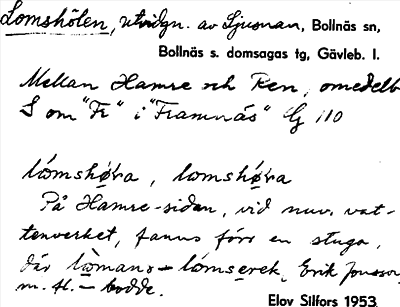 Lomshölen, utvidgn. av Ljusnan, Bollnäs sn,
Bollnäs s. domsagas tg, Gävleb. l.
Mellan Hamre och Ren, omedelb
S om "Fr" i "Framnäs" G 110
lómshø̀ra, lomshø̀ra
På Hamre-sidan, vid nuv. vat-
tenverket, fanns förr en stuga,
där lòmans - lómserek, Erik Jonsson
m. fl. - bodde.
Elov Silfors 1953